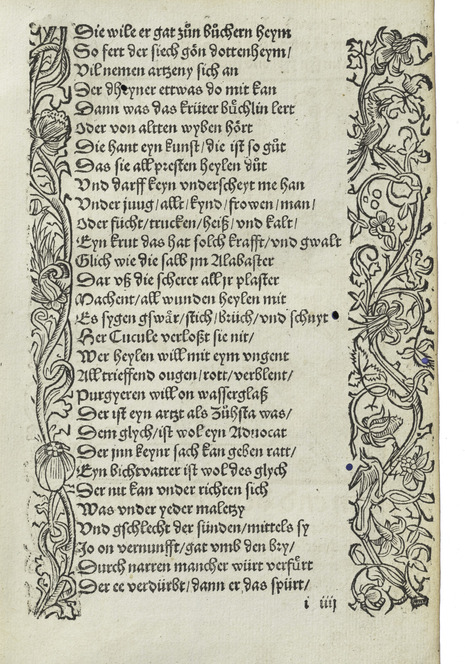 Die wile er gat zůn bůchern heym
So fert der siech gön dottenheym/
Vil nemen artzeny sich an
Der dheyner ettwas do mit kan
Dann was das krüter bůchlin lert
Oder von altten wyben hört
Die hant eyn kunst/die ist so gůt
Das sie all presten heylen důt
Vnd darff keyn vnderscheyt me han
Vnder jung/allt/kynd/frowen/man/
Oder fücht/trucken/heiß/vnd kalt/
Eyn krut das hat solch krafft/vnd gwalt
Glich wie die salb jm Alabaster
Dar vß die scherer all jr plaster
Machent/all wunden heylen mit
Es sygen gswär/stich/brüch/vnd schnyt
Her Cucule verloßt sie nit/
Wer heylen will mit eym vngent
All trieffend ougen/rott/verblent/
Purgyeren will on wasserglaß
Der ist eyn artzt als Zůhsta was/
Dem glych/ist wol eyn Aduocat
Der jnn keynr sach kan geben ratt/
Eyn bichtvatter ist wol des glych
Der nit kan vnder richten sich
Was vnder yeder maletzy
Vnd gschlecht der sünden/mittels sy
Jo on vernunfft/gat vmb den bry/
Durch narren mancher würt verfůrt
Der ee verdürbt/dann er das spürt/
i iiij